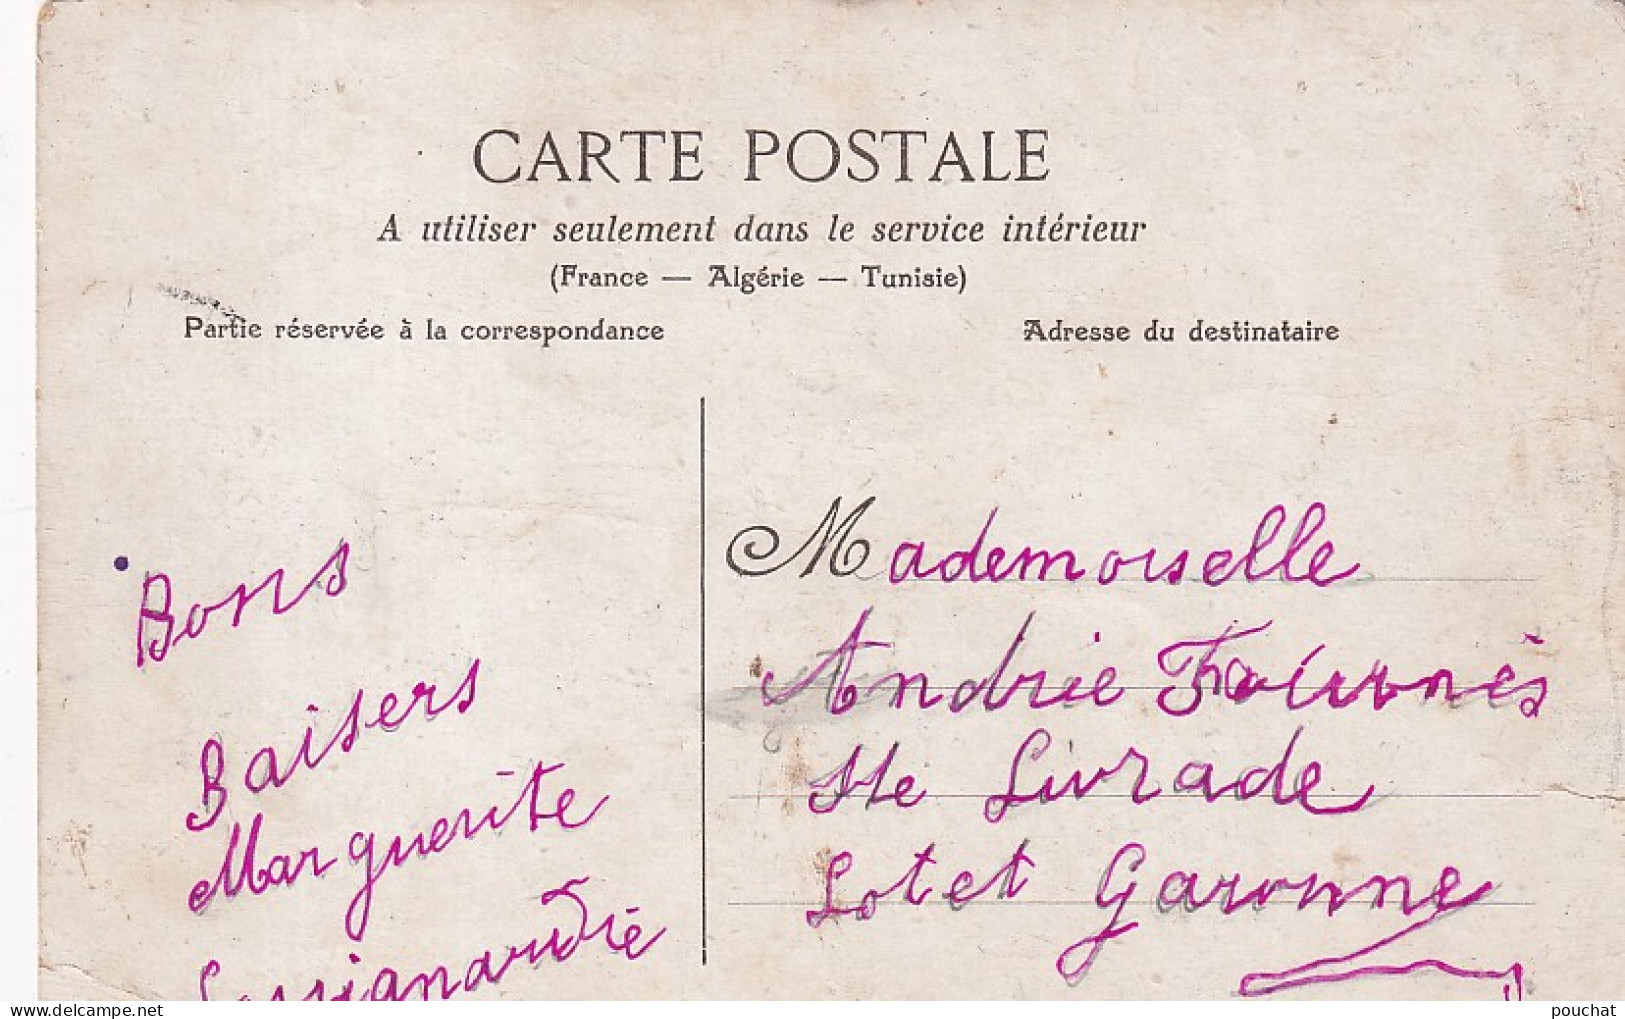 CARTE POSTALE
A utiliser seulement dans le service intérieur
(France — Algérie — Tunisie)
Partie réservée à la correspondance
Adresse du destinataire
Bons
Baisers
Marguerite
Mademoiselle
Andrie Fournès
Ste Livrade
Lot et Garonne
www.delcampe.net
pouchat